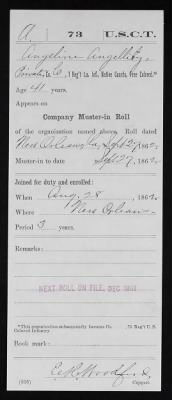 A. 73 U.S.C.T.
Angeline Angellety
Private, Co. , 1 Reg't La. Inf., Native Guards, Free Colored.*
Age 41 years.
Appears on
Company Muster-in Roll
of the organization named above. Roll dated
New Orleans, La, Sept 27, 1862.
Muster-in to date Sept 27, 1862.
Joined for duty and enrolled:
When Aug. 28, 1862.
Where New Orleans
Period 3 years.
Remarks:
NEXT ROLL ON FILE, DEC 1862
*This organization subsequently became Co.
73 Reg't U.S.
Colored Infantry.
Book mark:
(356) Copyist.